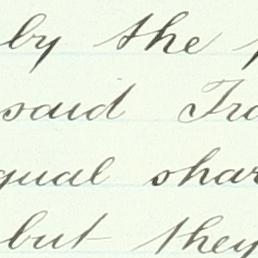 by the
said Tra
qual shar
but they